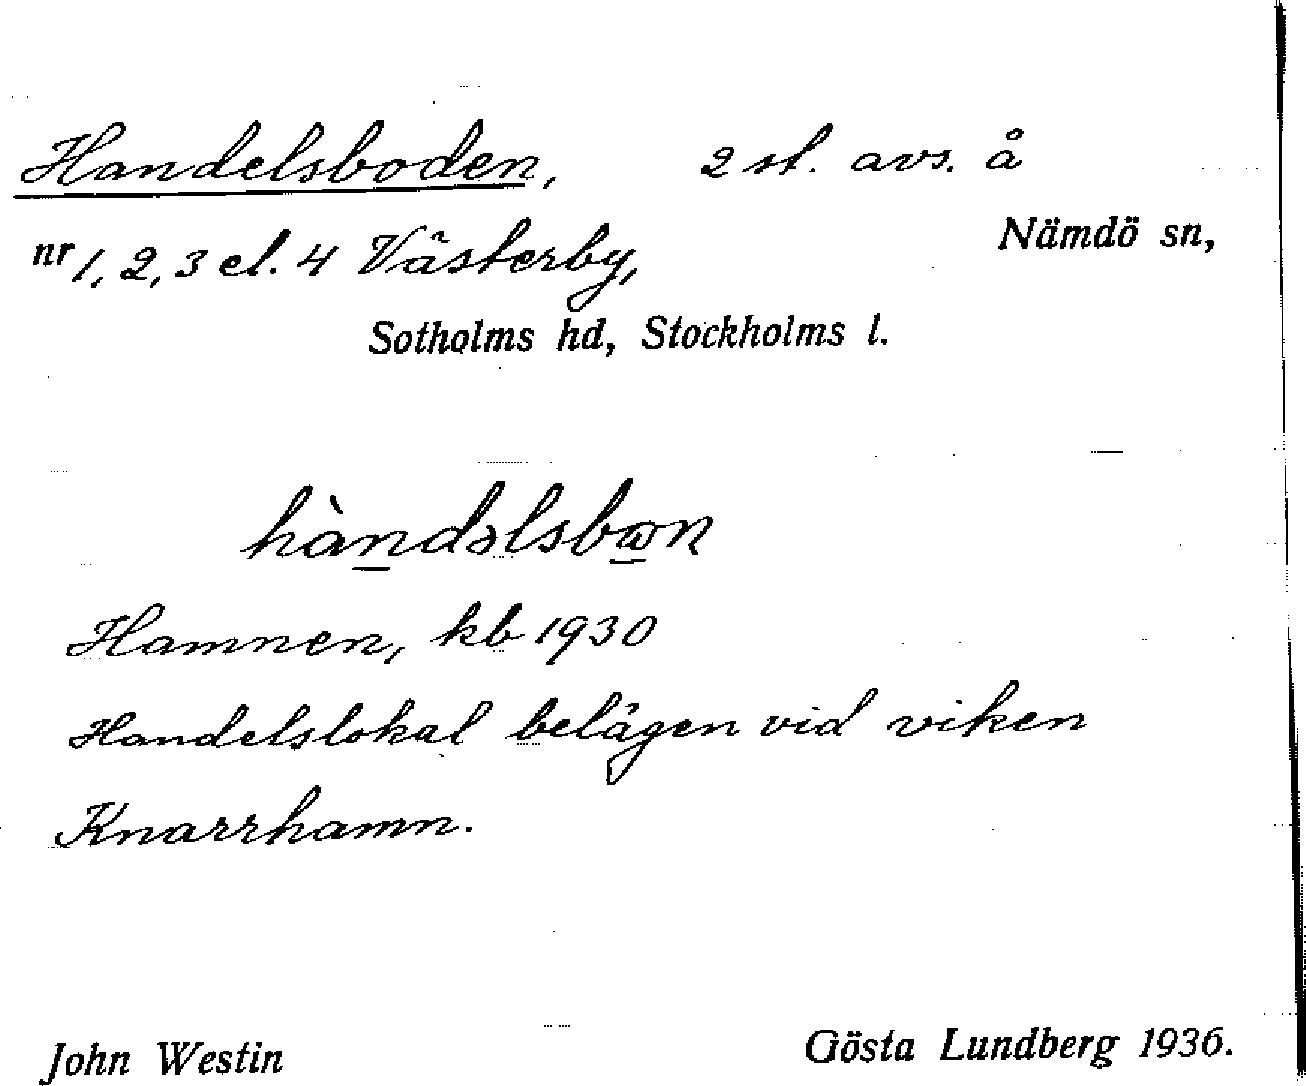 Handelsboden, 2 st. avs. å
nr 1, 2, 3 el. 4 Västerby, Nämdö sn,
Sotholms hd, Stockholms l.
hàndəlsbɷn
Hamnen, kb 1930
Handelslokal belägen vid viken
Knarrhamn.
John Westin Gösta Lundberg 1936.